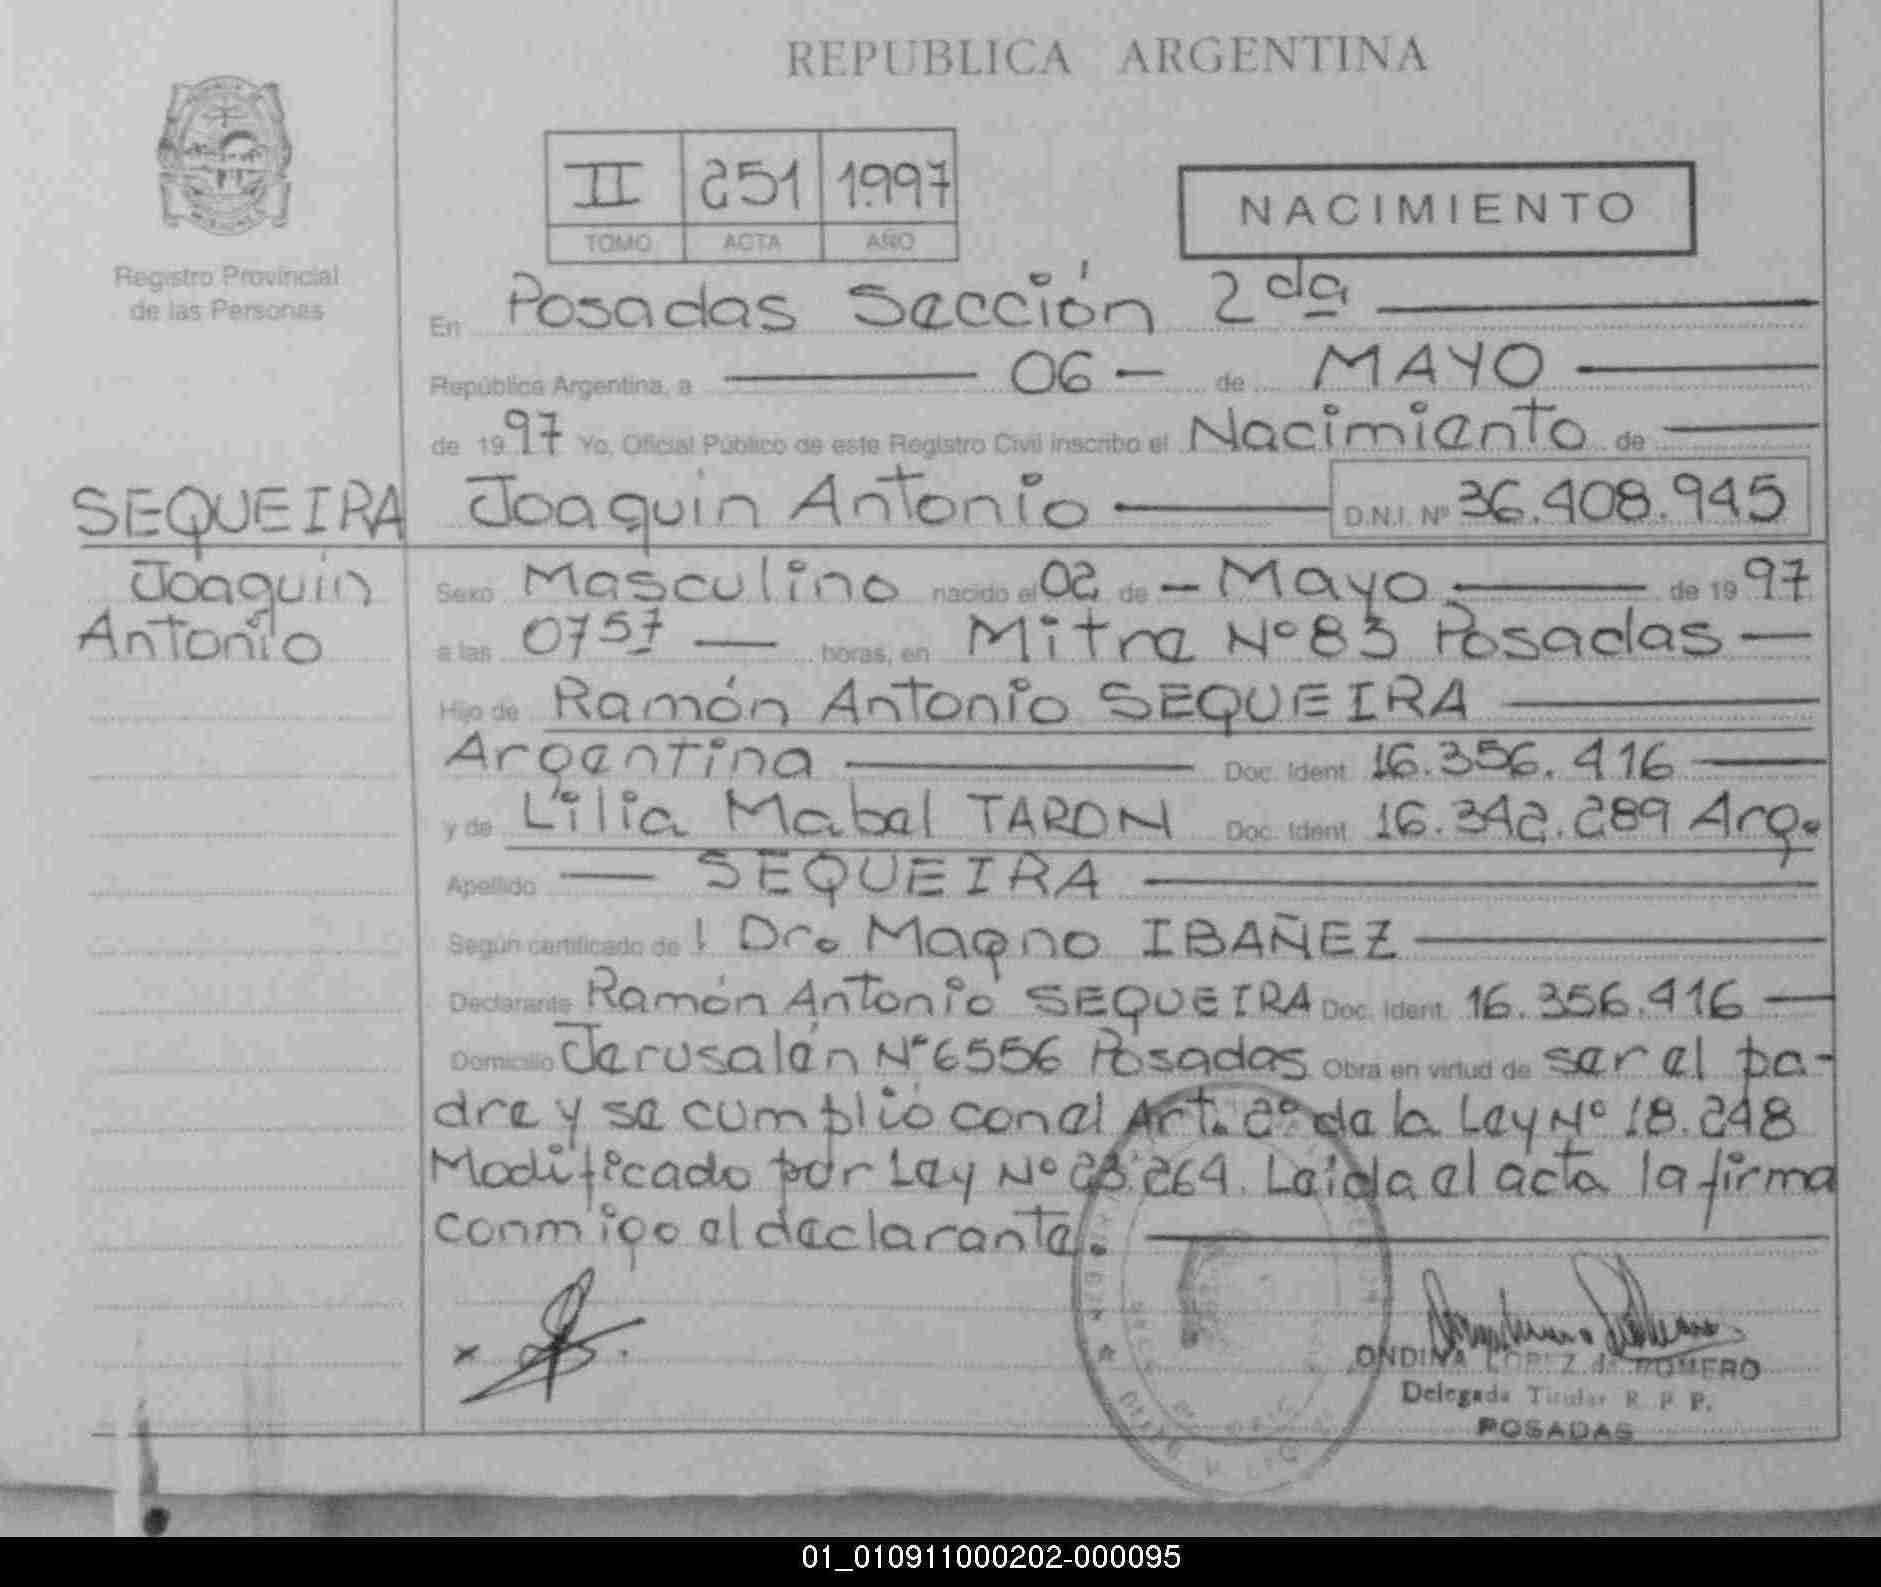 REPUBLICA ARGENTINA
Registro Provincial
de las Personas
II 251 1.997
TOMO ACTA AÑO
NACIMIENTO
En Posadas Sección 2da
República Argentina, a 06 - de MAYO
de 1997 Yo, Oficial Público de este Registro Civil inscribo el Nacimiento de
SEQUEIRA Joaquin Antonio D.N.I. Nº 36.408.945
Joaquin
Antonio
Sexo Masculino nacido el 02 de - Mayo de 1997
a las 0757 horas, en Mitre Nº 83 Posadas
Hijo de Ramón Antonio SEQUEIRA
Argentina Doc. Ident. 16.356.416
y de Lilia Mabel TARON Doc. Ident. 16.342.289 Arg.
Apellido SEQUEIRA
Según certificado de l Dr. Magno IBAÑEZ
Declarante Ramón Antonio SEQUEIRA Doc. Ident. 16.356.416
Domicilio Jerusalén Nº 6556 Posadas Obra en virtud de ser el pa-
dre y se cumplió con el Art. 2º de la Ley Nº 18.248
Modificado por Ley Nº 23.264. Leida el acta la firma
conmigo el declarante.
ONDINA LOPEZ de ROMERO
Delegada Titular R. P. P.
POSADAS
01_010911000202-000095